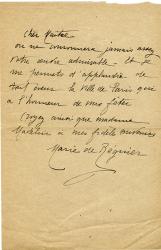 Cher Maître
on ne couronnera jamais assez
votre œuvre admirable. Et je
me permets d'applaudir de
tout cœur la Ville de Paris qui
a l'honneur de vous fêter
Croyez ainsi que madame
à mes fidèles
Marie de Régnier